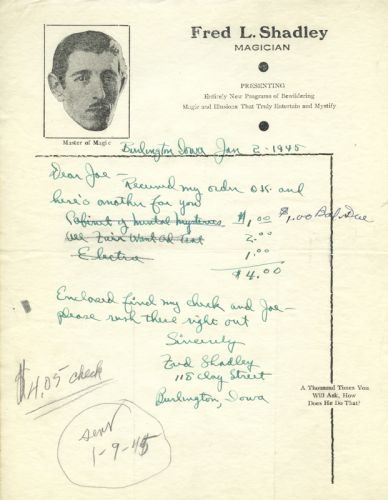 Fred L. Shadley
MAGICIAN
PRESENTING
Entirely New Programs of Bewildering
Magic and Illusions That Truly Entertain and Mystify
Master of Magic
Burlington Iowa Jan 2-1945
Dear Joe— Received my order O.K. and
here's another for you
Cabinet of Mental Mysteries $1.00 $1.00 Bal. Due
Want Ad Test 2.00
1.00
$4.00
Enclosed find my check and Joe—
please rush these right out
Sincerely
Fred Shadley
118 Clay Street
Burlington, Iowa
$4.05 check
sent
1-9-45
A Thousand Times You
Will Ask, How
Does He Do That?